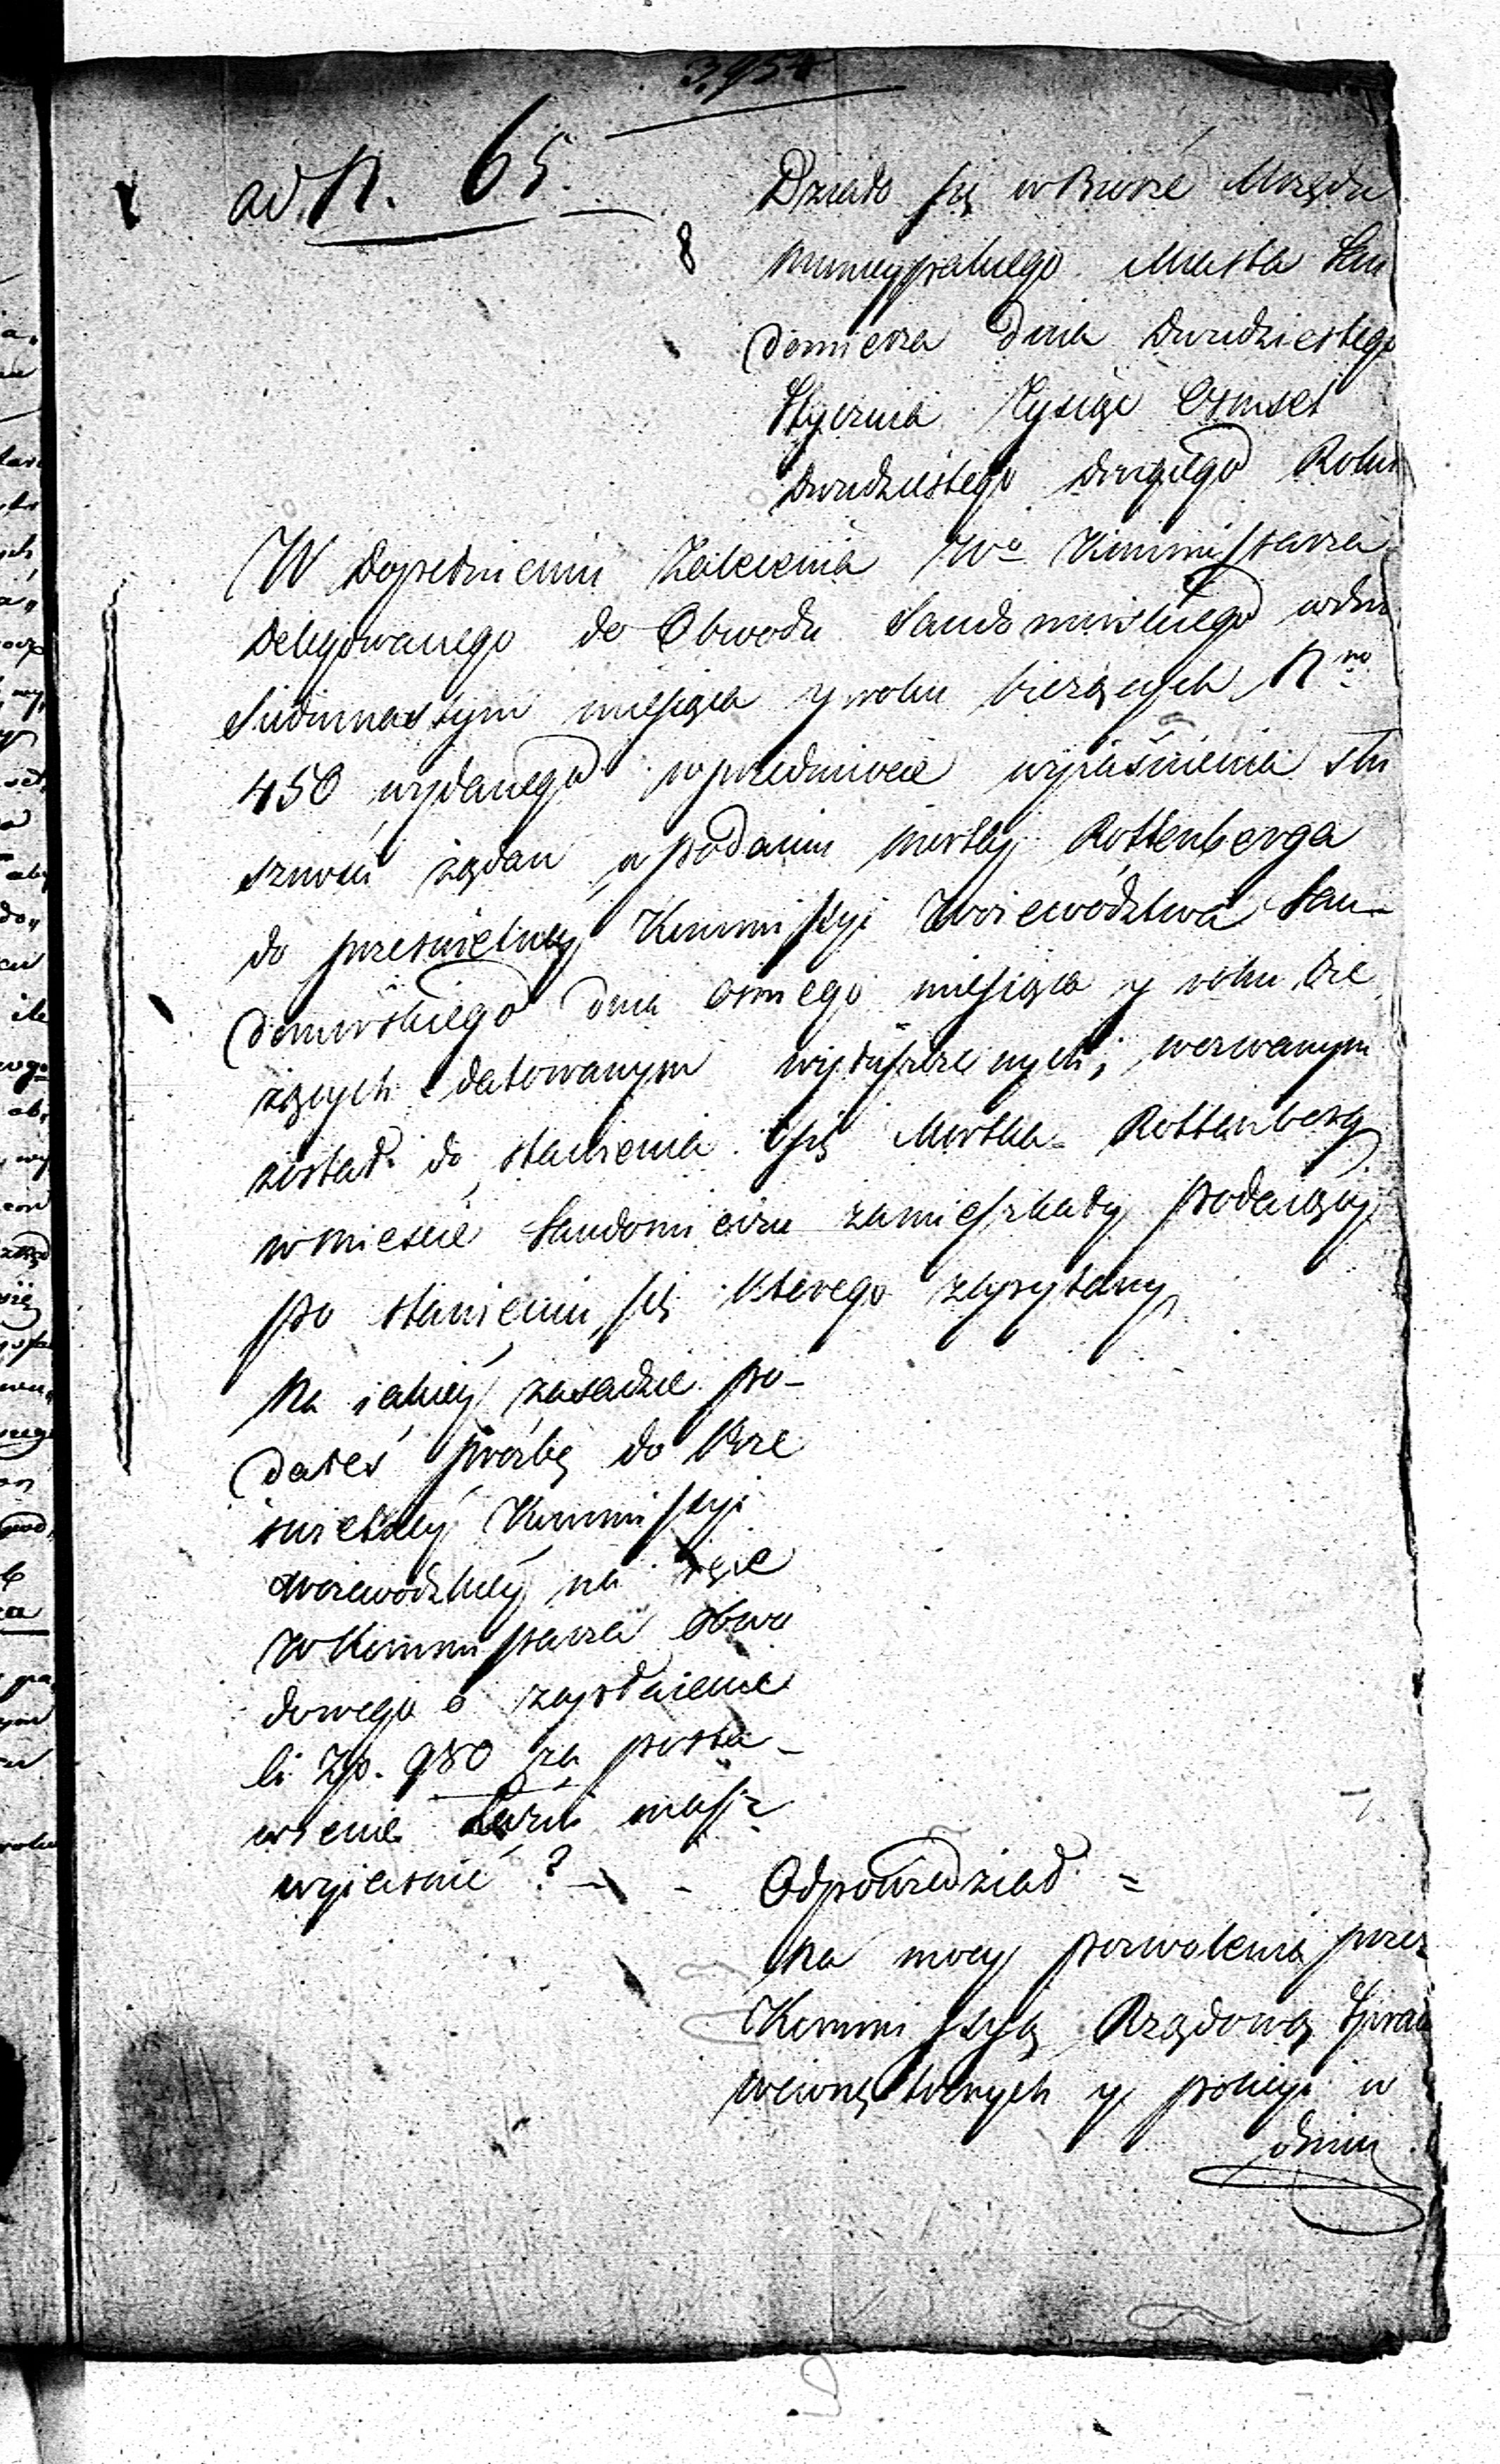 3954
ad N. 65.
8
Działo się w Biorze Urzędu
Municypalnego Miasta San
domierza dnia dwudziestego
Stycznia Tysiąc Ośmset
dwudziestego drugiego Roku
W dopełnieniu Zalecenia Wo Kommissarza
Delegowanego do Obwodu Sandomirskiego w dniu
Siedmnastym miesiąca y roku bieżących Nro
450 wydanego w przedmiocie wyiaśnienia słu
szności żądań w podaniu Mortky Rottenberga
do prześwietney Kommissyi Woiewództwa San-
domirskiego dnia osmego miesiąca y roku bie
żących datowanym wyłuszczonych, wezwanym
został do stawienia się Mortka Rottenberg
w mieście Sandomierzu zamieszkały podaiący
po stawieniu się którego zapytany
Na iakiey zasadzie po-
dałeś prożbę do Prze
świetney Kommissyi
Woiewódzkiey na ręce
W Kommissarza Obwo
dowego o zapłacenie
Ci Zp. 980 za posta-
wienie Łaźni masz
wyiaśnić? -
Odpowiedział =
Na mocy pozwolenia przez
Kommissyą Rządową Spraw
wewnętrznych y policyi w
dniu